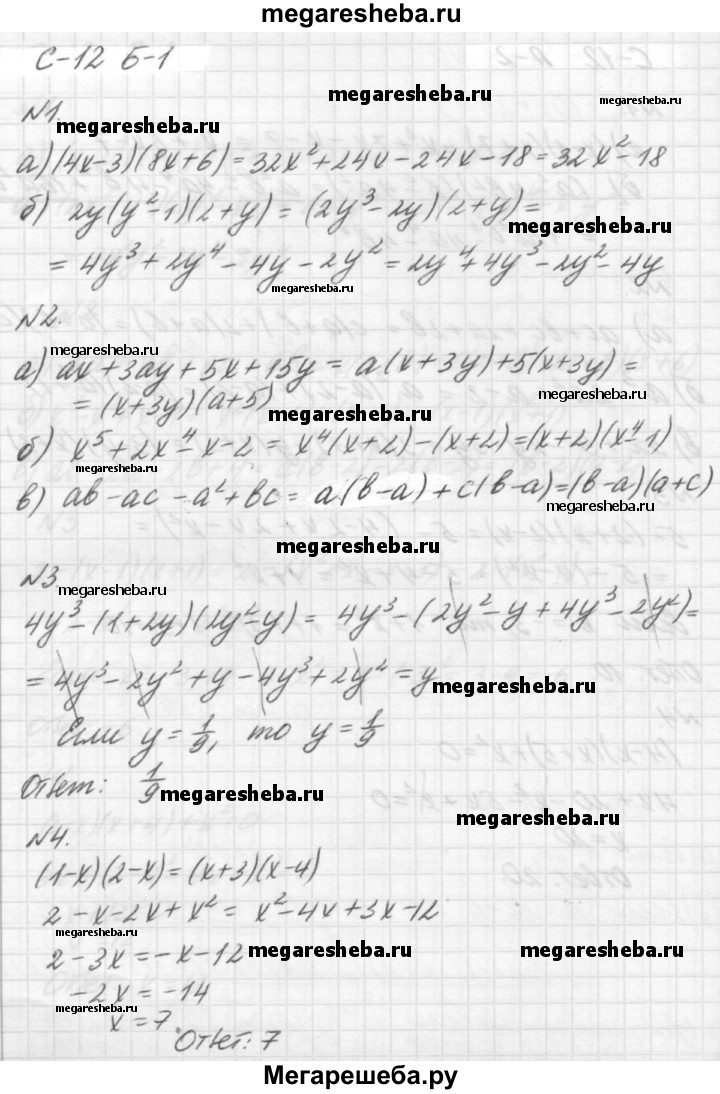 megaresheba.ru
С-12 Б-1
megaresheba.ru
megaresheba.ru
№1.
megaresheba.ru
а) (4x-3)(8x+6) = 32x²+24x-24x-18 = 32x²-18
б) 2y(y²-1)(2+y) = (2y³-2y)(2+y) =
megaresheba.ru
= 4y³+2y⁴-4y-2y² = 2y⁴+4y³-2y²-4y
megaresheba.ru
№2.
megaresheba.ru
а) ax+3ay+5x+15y = a(x+3y)+5(x+3y) =
megaresheba.ru
= (x+3y)(a+5)
megaresheba.ru
б) x⁵+2x⁴-x-2 = x⁴(x+2)-(x+2)=(x+2)(x⁴-1)
megaresheba.ru
в) ab-ac-a²+bc = a(b-a)+c(b-a)=(b-a)(a+c)
megaresheba.ru
megaresheba.ru
№3
megaresheba.ru
4y³-(1+2y)(2y²-y) = 4y³-(2y²-y+4y³-2y²)=
= 4y³-2y²+y-4y³+2y² = y
megaresheba.ru
Если y = 1/9, то y = 1/9
Ответ: 1/9
megaresheba.ru
№4.
(1-x)(2-x)=(x+3)(x-4)
2-x-2x+x² = x²-4x+3x-12
megaresheba.ru
2-3x = -x-12
megaresheba.ru
megaresheba.ru
-2x = -14
megaresheba.ru
x = 7.
Ответ: 7
Мегарешеба.ру